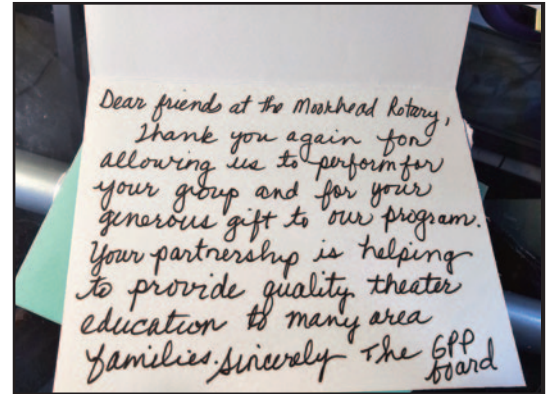 Dear friends at the Moorhead Rotary,
Thank you again for
allowing us to perform for
your group and for your
generous gift to our program.
Your partnership is helping
to provide quality theater
education to many area
families. Sincerely The GPP
board